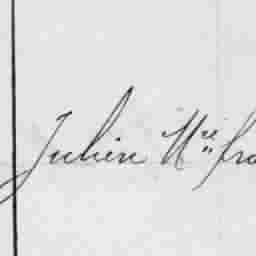 Julien Mre fra